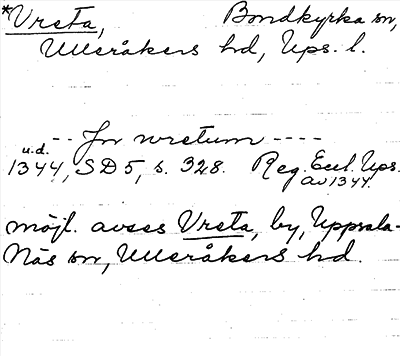 *Vreta, Bondkyrka sn,
Ulleråkers hd, Ups. l.
-- Jn wretum ----
u.d.
1344, SD5, s. 328. Reg. Eccl. Ups.
av 1344.
möjl. avses Vreta, by, Uppsala-
Näs sn, Ulleråkers hd.